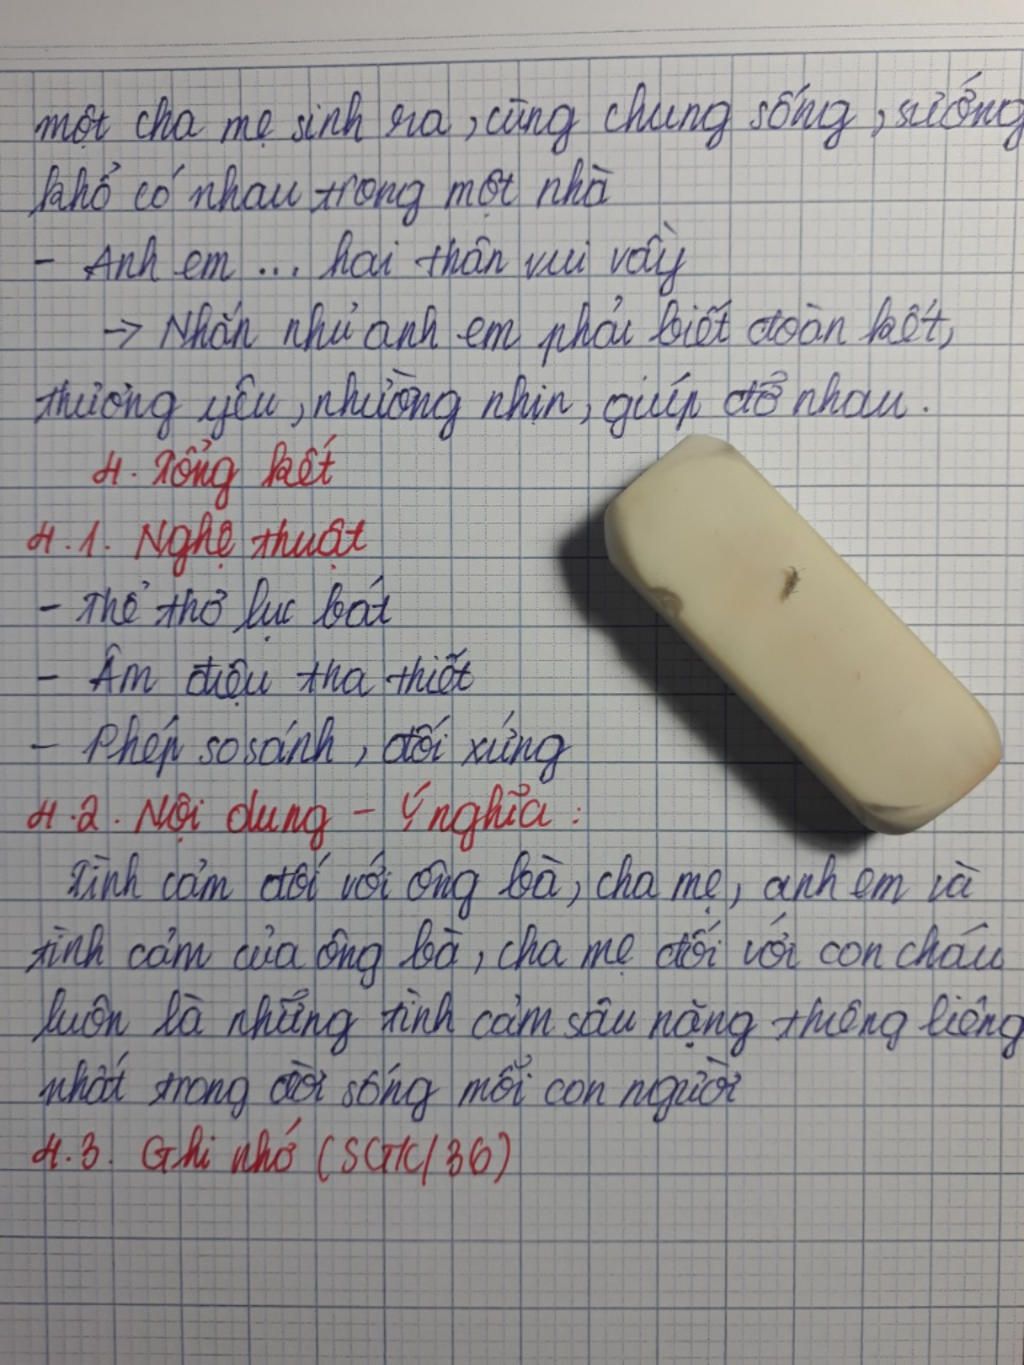 một cha mẹ sinh ra, cùng chung sống, sướng
khổ có nhau trong một nhà
- Anh em ... hai thân vui vầy
-> Nhắn nhủ anh em phải biết đoàn kết,
thương yêu, nhường nhịn, giúp đỡ nhau.
4. Tổng kết
4.1. Nghệ thuật
- Thể thơ lục bát
- Âm điệu tha thiết
- Phép so sánh, đối xứng
4.2. Nội dung - Ý nghĩa:
Tình cảm đối với ông bà, cha mẹ, anh em và
tình cảm của ông bà, cha mẹ đối với con cháu
luôn là những tình cảm sâu nặng thiêng liêng
nhất trong đời sống mỗi con người
4.3. Ghi nhớ (SGK/36)